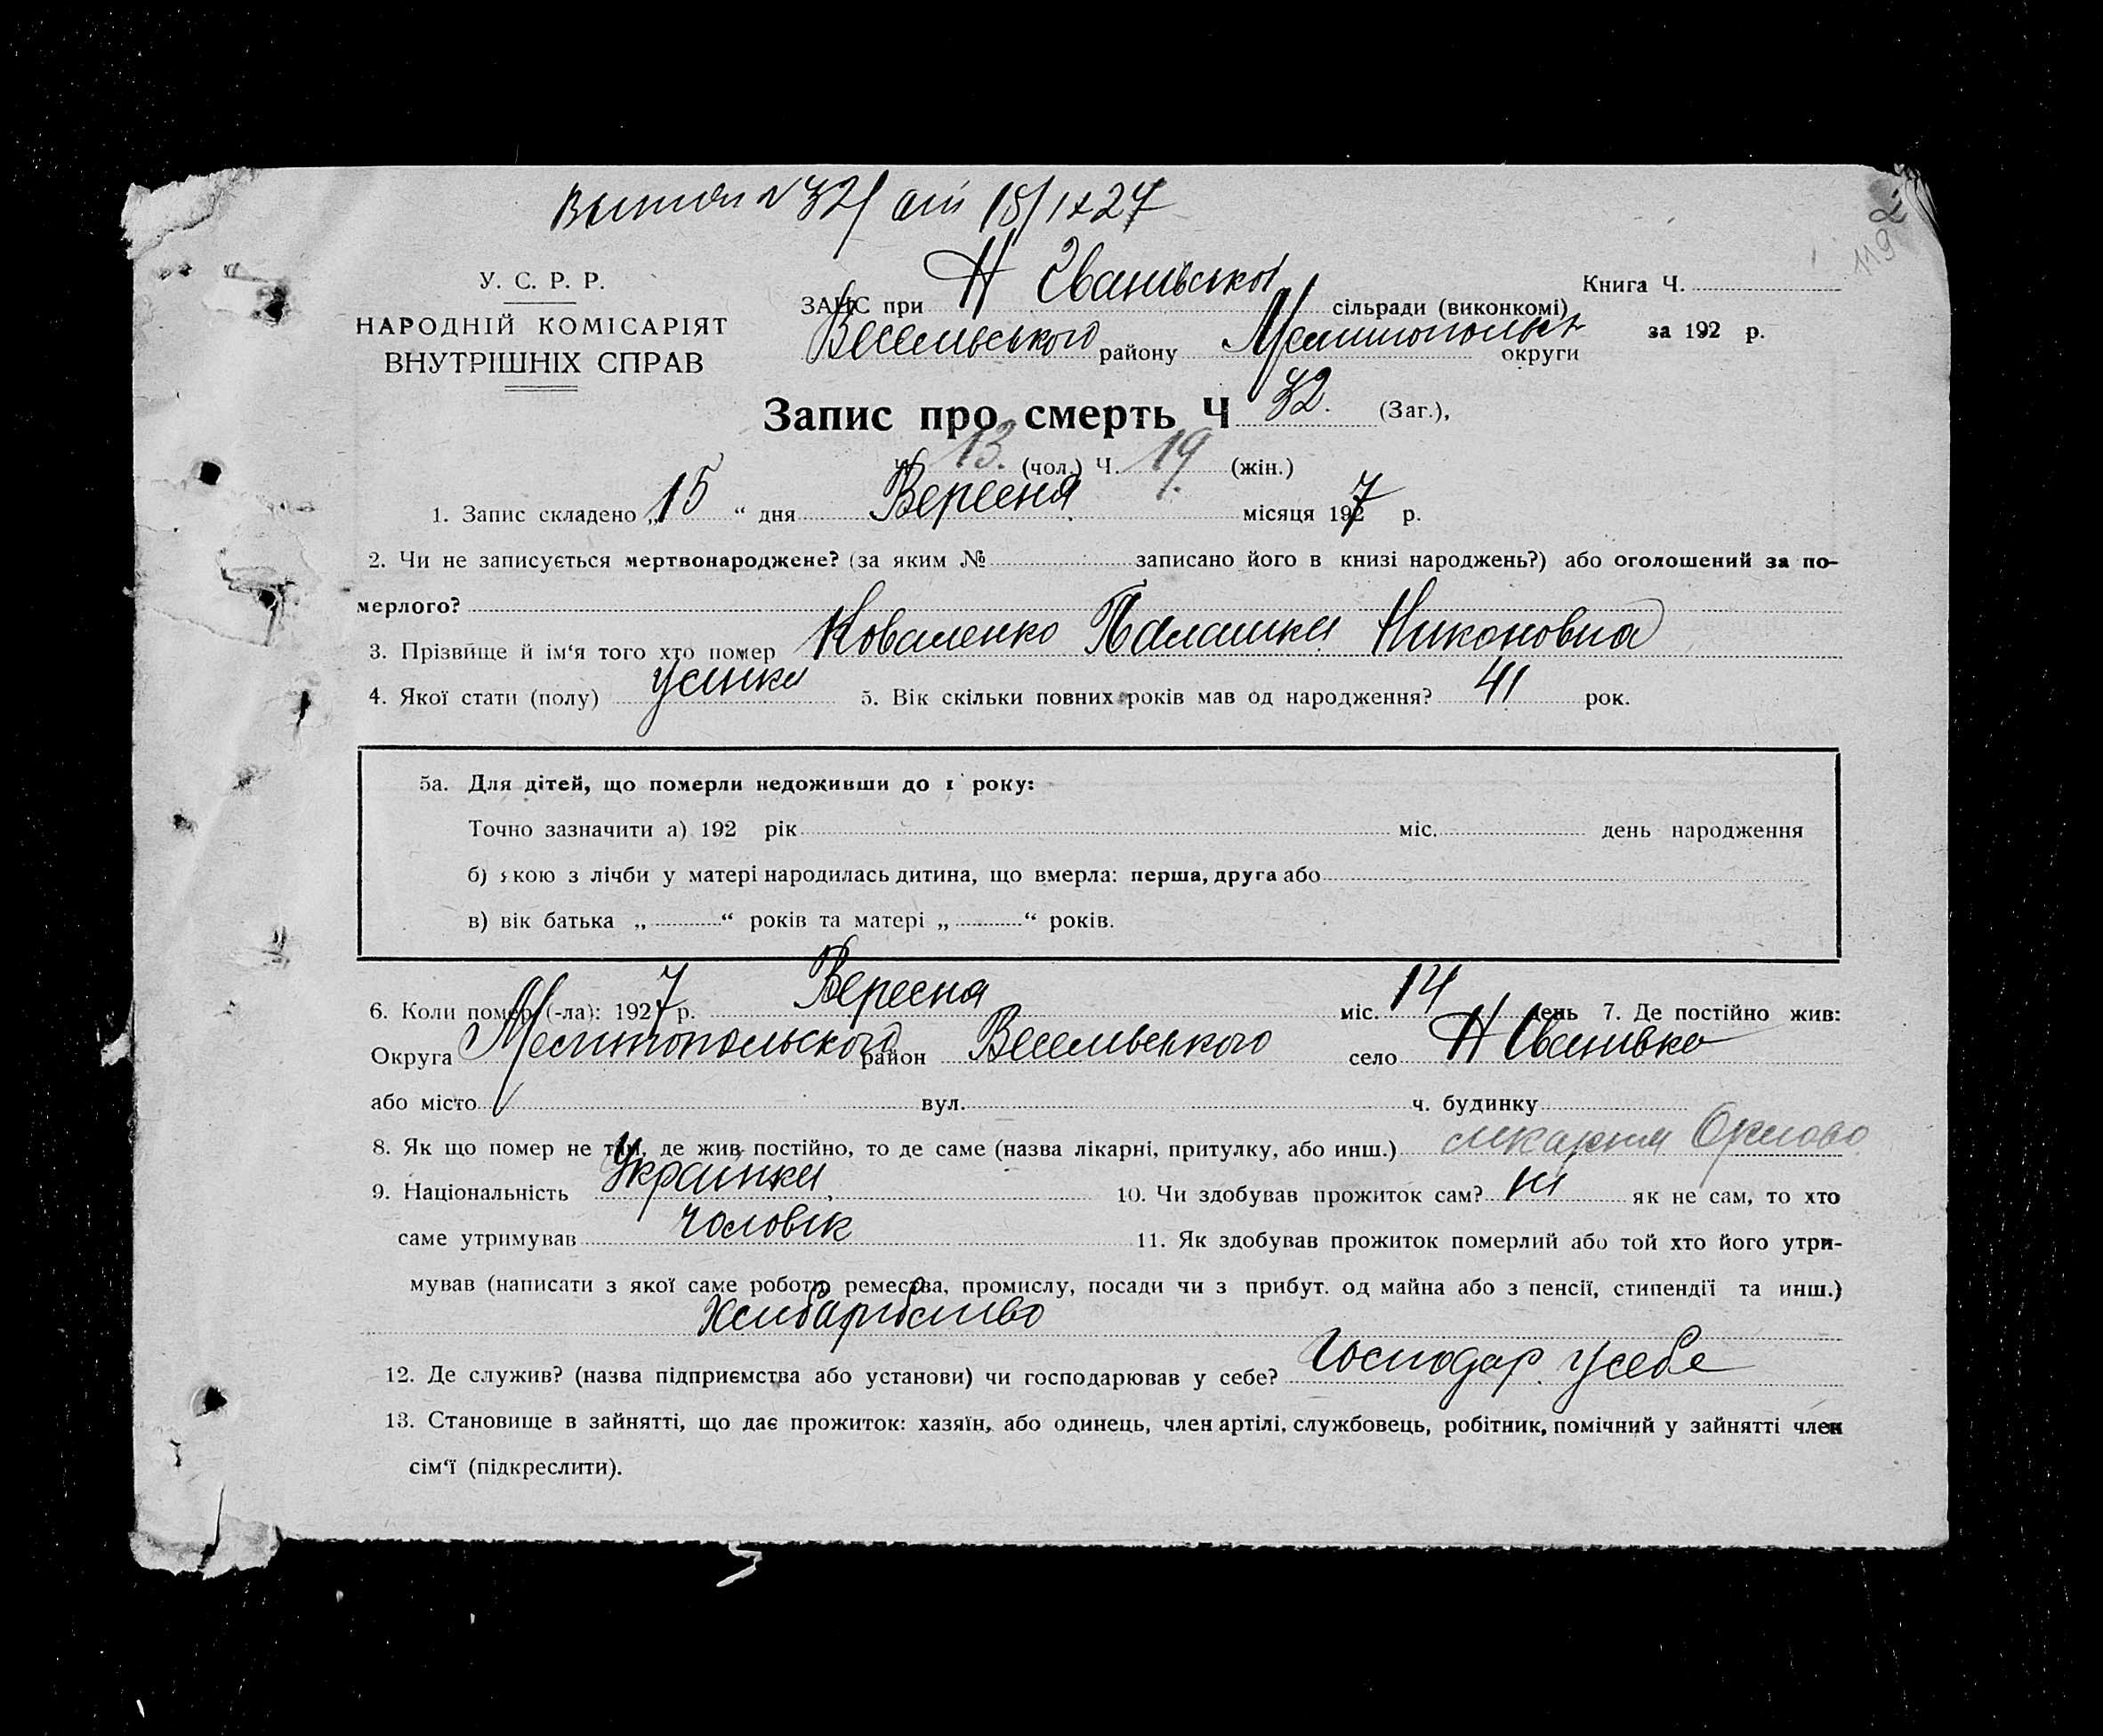 Витяг № 32 / від 15/IX 27
119
У. С. Р. Р.
НАРОДНІЙ КОМІСАРІЯТ
ВНУТРІШНІХ СПРАВ
ЗАЦС при Н Єванівської сільради (виконкомі)
Весельського району Мелитопольск округи
Книга Ч.
за 192 р.
Запис про смерть Ч 32. (Заг.),
Ч. 13. (чол.) Ч. 19 (жін.)
1. Запис складено „15“ дня Вересня місяця 1927 р.
2. Чи не записується мертвонароджене? (за яким № записано його в книзі народжень?) або оголошений за по-
мерлого?
3. Прізвище й ім‘я того хто помер Коваленко Палашка Никоновна
4. Якої стати (полу) 5. Вік скільки повних років мав од народження? 41 рок.
5а. Для дітей, що померли недоживши до 1 року:
Точно зазначити а) 192 рік міс. день народження
б) якою з лічби у матері народилась дитина, що вмерла: перша, друга або
в) вік батька „ “ років та матері „ “ років.
6. Коли помер (-ла): 1927 р. Вересня міс. 14 день 7. Де постійно жив:
Округа Мелитопольского район Весельвського село Н Єванивка
або місто вул. ч. будинку
8. Як що помер не там, де жив постійно, то де саме (назва лікарні, притулку, або инш.) лікарня
9. Національність Украинка 10. Чи здобував прожиток сам? ні як не сам, то хто
саме утримував чоловік 11. Як здобував прожиток померлий або той хто його утри-
мував (написати з якої саме роботи, ремества, промислу, посади чи з прибут. од майна або з пенсії, стипендії та инш.)
Хлибарибство
12. Де служив? (назва підприємства або установи) чи господарював у себе? Господар. у себе
13. Становище в зайнятті, що дає прожиток: хазяїн, або одинець, член артілі, службовець, робітник, помічний у зайнятті член
сім‘ї (підкреслити).